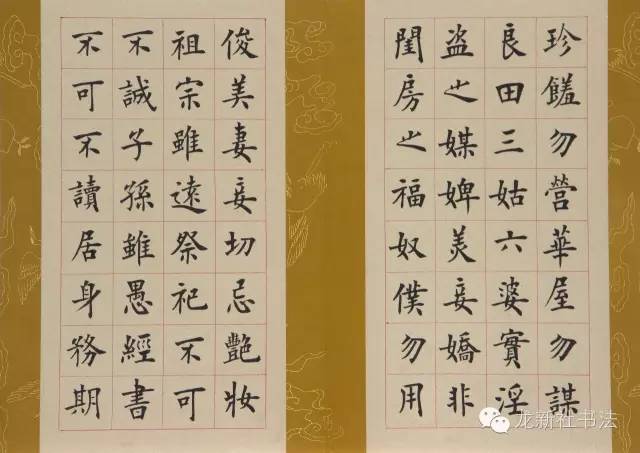 珍饈勿營華屋勿謀
良田三姑六婆實淫
盗之媒婢美妾嬌非
閨房之福奴僕勿用
俊美妻妾切忌艷妝
祖宗雖遠祭祀不可
不誠子孫雖愚經書
不可不讀居身務期
龙新社书法